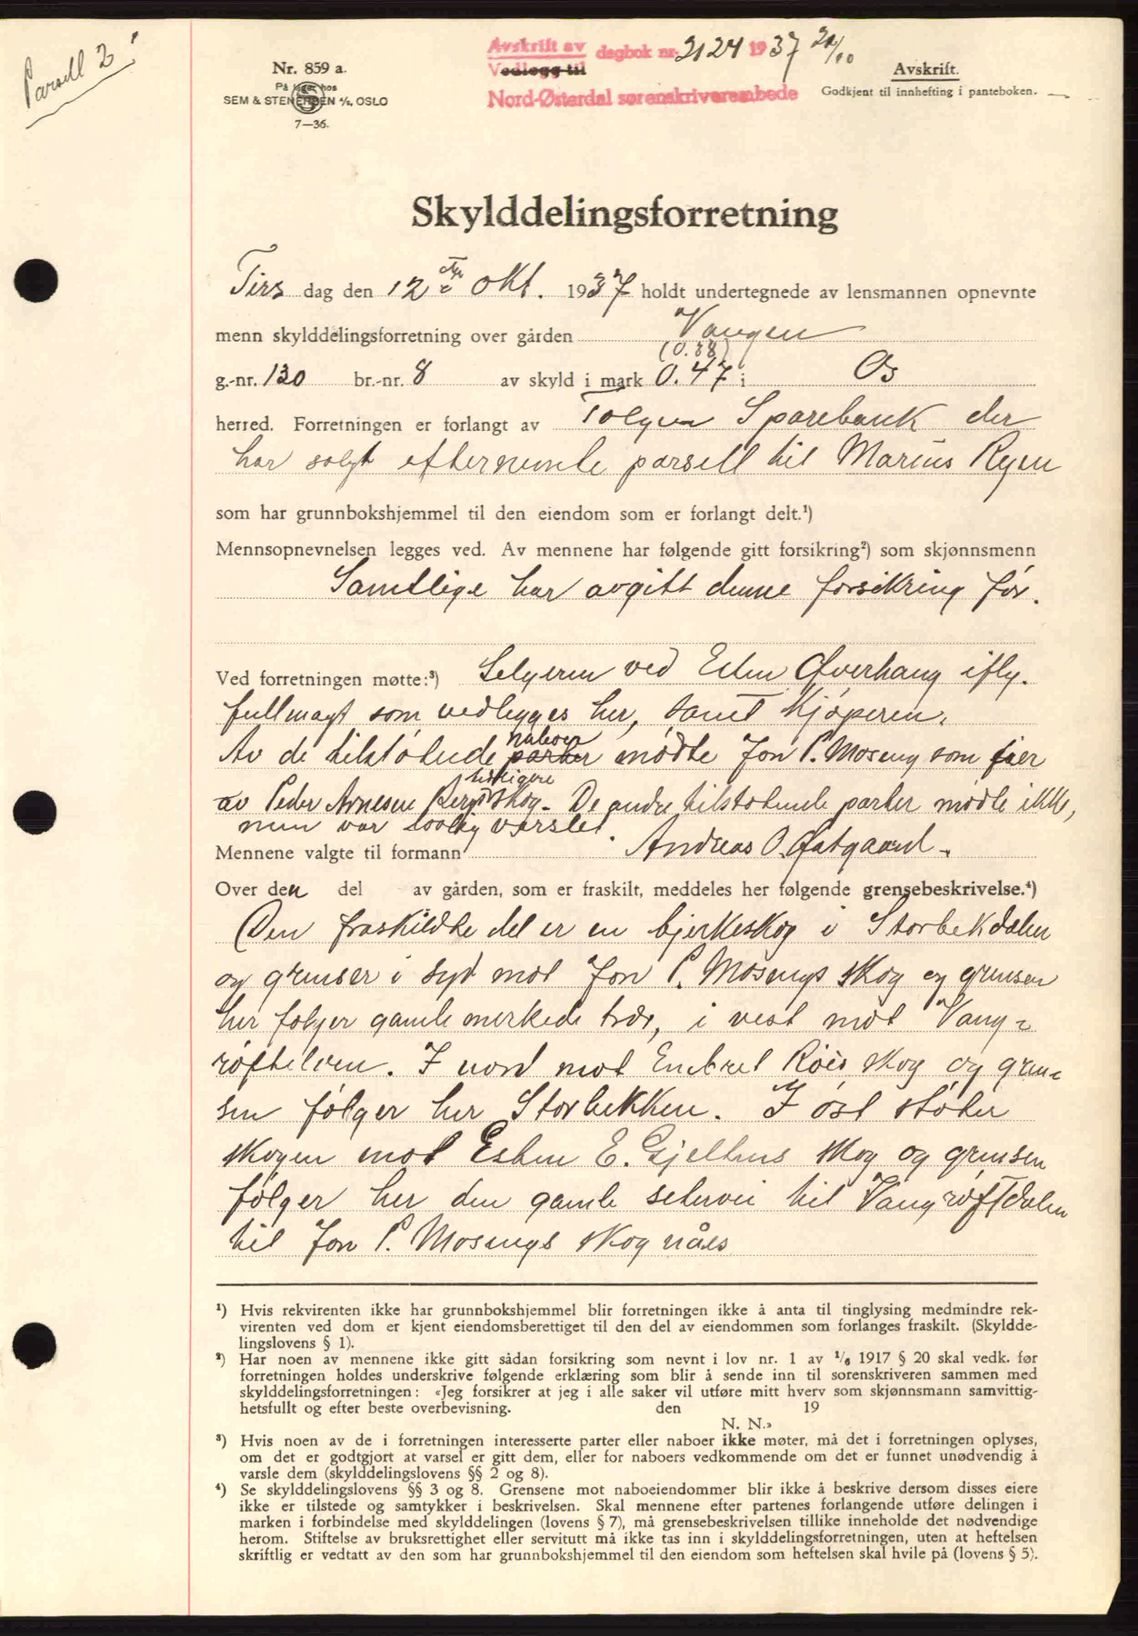 Parsell 2
Avskrift av dagbok nr. 2124 1937 20/10
Vedlegg til
Nord-Østerdal sorenskriverembede
Nr. 859 a.
På lager hos
SEM & STENERSEN A/S, OSLO
7—36.
Avskrift.
Godkjent til innhefting i panteboken.
Skylddelingsforretning
Tirsdag den 12te okt. 1937 holdt undertegnede av lensmannen opnevnte
menn skylddelingsforretning over gården Vangen
(0.88)
g.-nr. 130 br.-nr. 8 av skyld i mark 0.47 i Os
herred. Forretningen er forlangt av Tolgen Sparebank der
har solgt efternevnte parsell til Marius Ryen
som har grunnbokshjemmel til den eiendom som er forlangt delt.¹)
Mennsopnevnelsen legges ved. Av mennene har følgende gitt forsikring²) som skjønnsmenn
Samtlige har avgitt denne forsikring før.
Ved forretningen møtte:³) Selgeren ved Esten Øverhaug iflg.
fullmagt som vedlegges her, samt kjøperen.
Av de tilstøtende parter naboer mødte Jon P. Moseng som eier
av Peder Arnesen Bergs tidligere skog. De andre tilstøtende parter mødte ikke,
men var lovlig varslet.
Mennene valgte til formann Andreas O. Østgaard.
Over den del av gården, som er fraskilt, meddeles her følgende grensebeskrivelse.⁴)
Den fraskildte del er en bjerkeskog i Storbekdalen
og grenser i syd mot Jon P. Mosengs skog og grensen
her følger gamle merkede trær, i vest mot Vang-
røftelven. I nord mot Embret Røes skog og gren-
sen følger her Storbekken. I øst støter
skogen mot Esten E. Gjelthens skog og grensen
følger her den gamle setervei til Vangrøftdalen
til Jon P. Mosengs skog nåes
¹) Hvis rekvirenten ikke har grunnbokshjemmel blir forretningen ikke å anta til tinglysing medmindre rek-
virenten ved dom er kjent eiendomsberettiget til den del av eiendommen som forlanges fraskilt. (Skyldde-
lingslovens § 1).
²) Har noen av mennene ikke gitt sådan forsikring som nevnt i lov nr. 1 av 1/6 1917 § 20 skal vedk. før
forretningen holdes underskrive følgende erklæring som blir å sende inn til sorenskriveren sammen med
skylddelingsforretningen: «Jeg forsikrer at jeg i alle saker vil utføre mitt hverv som skjønnsmann samvittig-
hetsfullt og efter beste overbevisning. den 19
N. N.»
³) Hvis noen av de i forretningen interesserte parter eller naboer ikke møter, må det i forretningen oplyses,
om det er godtgjort at varsel er gitt dem, eller for naboers vedkommende om det er funnet unødvendig å
varsle dem (skylddelingslovens §§ 2 og 8).
⁴) Se skylddelingslovens §§ 3 og 8. Grensene mot naboeiendommer blir ikke å beskrive dersom disses eiere
ikke er tilstede og samtykker i beskrivelsen. Skal mennene efter partenes forlangende utføre delingen i
marken i forbindelse med skylddelingen (lovens § 7), må grensebeskrivelsen tillike inneholde det nødvendige
herom. Stiftelse av bruksrettighet eller servitutt må ikke tas inn i skylddelingsforretningen, uten at heftelsen
skriftlig er vedtatt av den som har grunnbokshjemmel til den eiendom som heftelsen skal hvile på (lovens § 5).